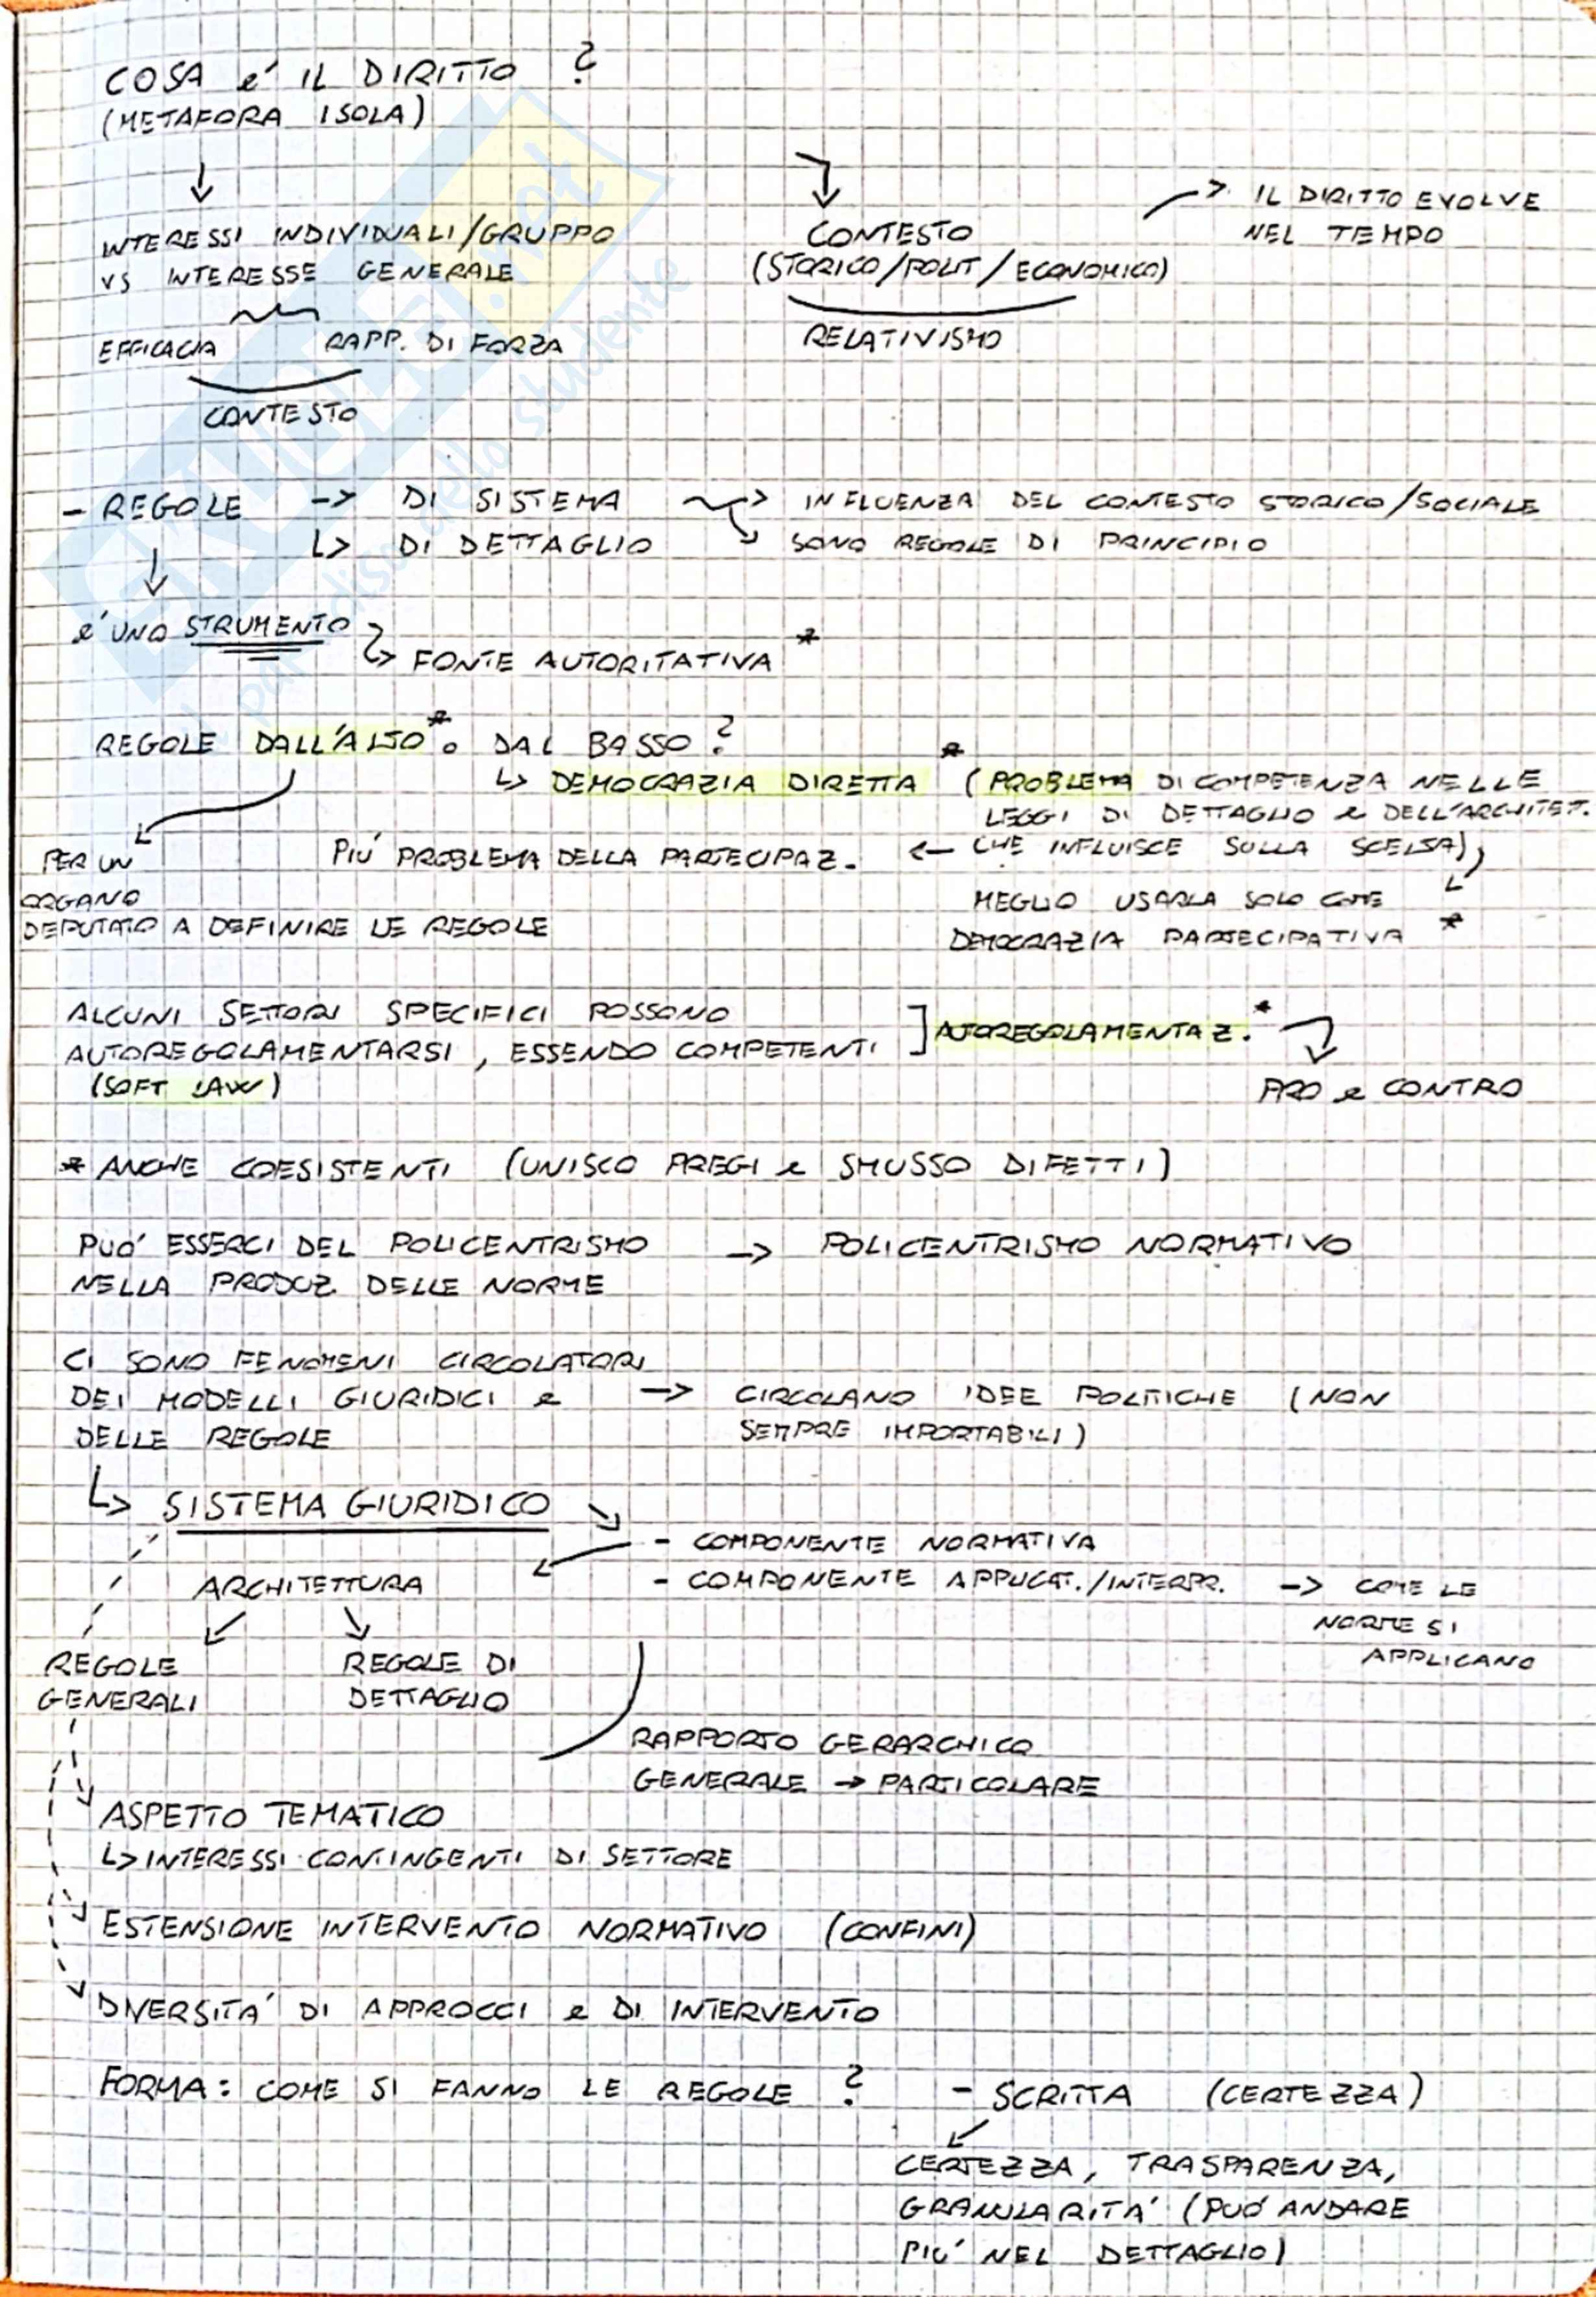 COSA è IL DIRITTO ?
(METAFORA ISOLA)
INTERESSI INDIVIDUALI/GRUPPO
VS INTERESSE GENERALE
EFFICACIA RAPP. DI FORZA
CONTESTO
CONTESTO
(STORICO/POLIT/ECONOMICO)
RELATIVISMO
-> IL DIRITTO EVOLVE
NEL TEMPO
- REGOLE -> DI SISTEMA ~> INFLUENZA DEL CONTESTO STORICO/SOCIALE
↳ DI DETTAGLIO SONO REGOLE DI PRINCIPIO
è UNO STRUMENTO
↳ FONTE AUTORITATIVA *
REGOLE DALL'ALTO* O DAL BASSO ?
↳ DEMOCRAZIA DIRETTA * (PROBLEMA DI COMPETENZA NELLE
LEGGI DI DETTAGLIO e DELL'ARCHITET.
CHE INFLUISCE SULLA SCELTA)
PIÙ PROBLEMA DELLA PARTECIPAZ. <-
MEGLIO USARLA SOLO COME
DEMOCRAZIA PARTECIPATIVA *
PER UN
ORGANO
DEPUTATO A DEFINIRE LE REGOLE
ALCUNI SETTORI SPECIFICI POSSONO
AUTOREGOLAMENTARSI, ESSENDO COMPETENTI ] AUTOREGOLAMENTAZ.*
(SOFT LAW)
PRO e CONTRO
* ANCHE COESISTENTI (UNISCO PREGI e SMUSSO DIFETTI)
PUO' ESSERCI DEL POLICENTRISMO -> POLICENTRISMO NORMATIVO
NELLA PRODUZ. DELLE NORME
CI SONO FENOMENI CIRCOLATORI
DEI MODELLI GIURIDICI e -> CIRCOLANO IDEE POLITICHE (NON
DELLE REGOLE SEMPRE IMPORTABILI)
↳ SISTEMA GIURIDICO
- COMPONENTE NORMATIVA
- COMPONENTE APPLICAT./INTERPR. -> COME LE
NORME SI
APPLICANO
ARCHITETTURA
REGOLE
GENERALI
REGOLE DI
DETTAGLIO
RAPPORTO GERARCHICO
GENERALE -> PARTICOLARE
ASPETTO TEMATICO
↳ INTERESSI CONTINGENTI DI SETTORE
ESTENSIONE INTERVENTO NORMATIVO (CONFINI)
DIVERSITA' DI APPROCCI e DI INTERVENTO
FORMA: COME SI FANNO LE REGOLE ? - SCRITTA (CERTEZZA)
CERTEZZA, TRASPARENZA,
GRANULARITA' (PUO' ANDARE
PIU' NEL DETTAGLIO)
SKUOLA.net
il paradiso dello studente